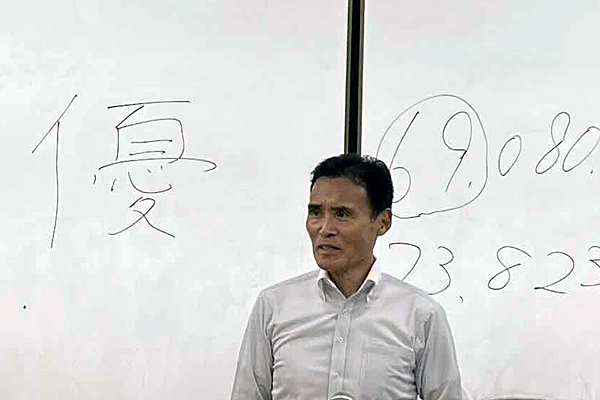 優
69.080.
73.823